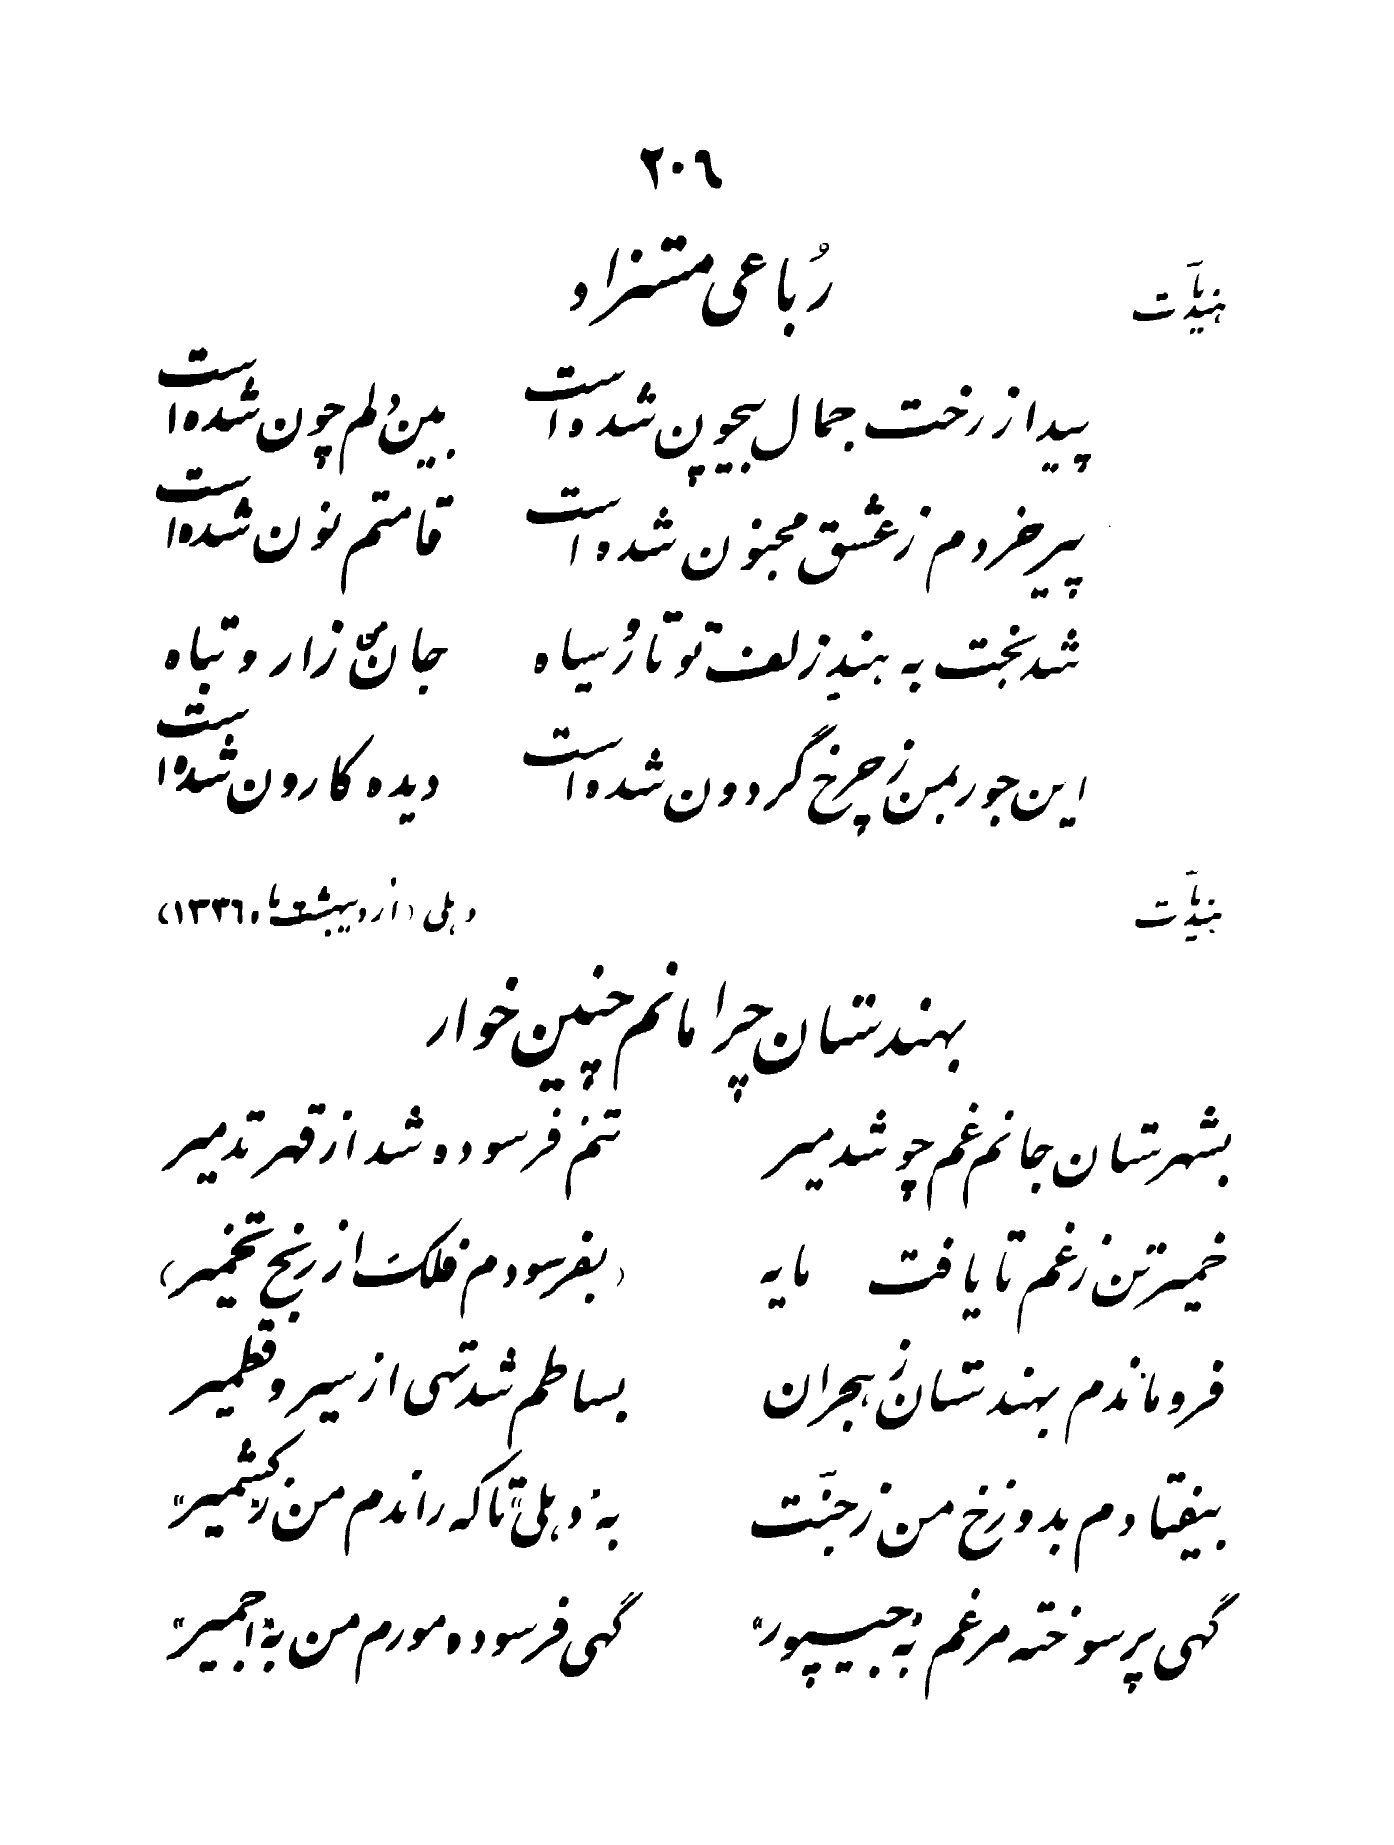 ٢٠٦
هندیات
رُباعی مستزاد
پیدا ز رخت جمال بیچون شده است بین دلم چون شده است
پیر خردم ز عشق مجنون شده است قامتم نون شده است
شد بخت به هندِ زلف تو تار و سیاه جان من زار و تباه
این جور بمن ز چرخ گردون شده است دیده کارون شده است
هندیات دهلی (اردیبهشت ماه ١٣٣٦)
بهندستان چرا مانم چنین خوار
بشهرستان جانم غم چو شد میر تنم فرسوده شد از قهر تدمیر
خمیر تن ز غم تا یافت مایه (بفرسودم فلک از رنج تخمیر)
فرو ماندم بهندستان ز هجران بساطم شد تهی از سیر و قطمیر
بیفتادم بدوزخ من ز جنّت به "دهلی" تا که راندم من ز "کشمیر"
گهی پر سوخته مرغم به "جیپور" گهی فرسوده مورم من به "اجمیر"